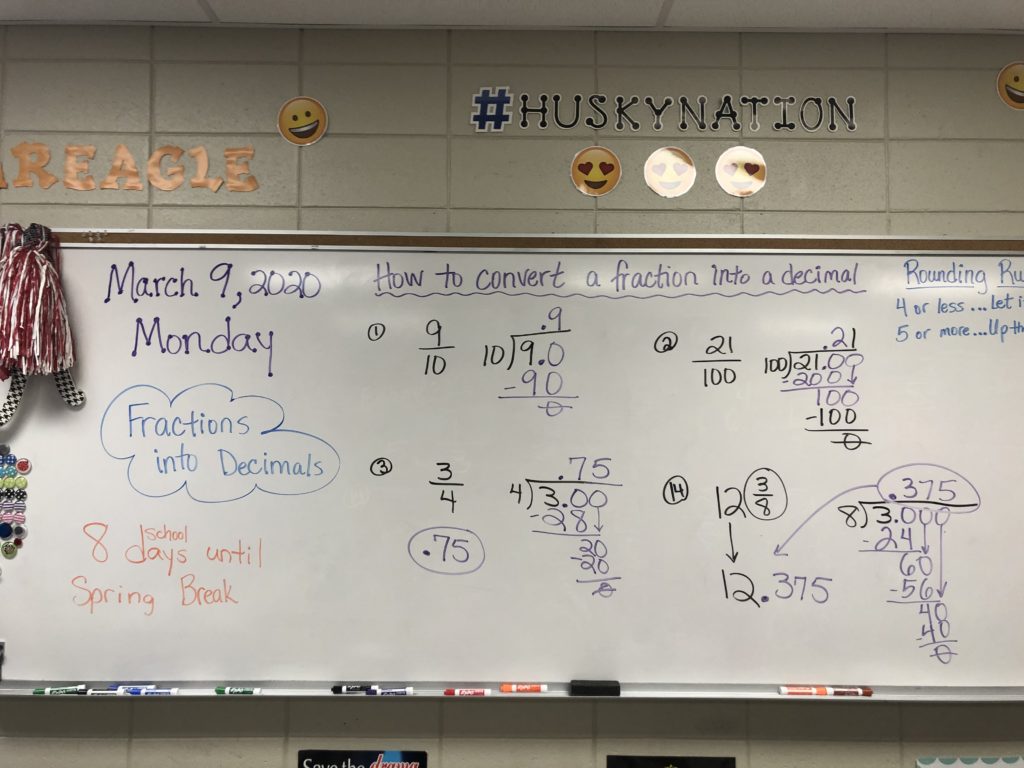 #HUSKYNATION
REAGLE
March 9, 2020
Monday
Fractions
into Decimals
8 school days until
Spring Break
How to convert a fraction into a decimal
① 9/10
.9
10)9.0
-90
0
② 21/100
.21
100)21.00
-200
100
-100
0
③ 3/4
.75
.75
4)3.00
-28
20
20
0
⑭ 12 3/8
12.375
.375
8)3.000
-24
60
-56
40
-40
0
Rounding
4 or less...Let
5 or more...Up
Save the drama